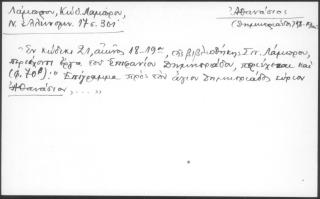 Λάμπρου, Κώδ. Λάμπρου,
Ν. Ελληνομν. 17 σ. 301
Ἀθανάσιος
(Δημητριάδος)
Ἐν κώδικι 21, αἰῶνος 18-19ου, τῆς βιβλιοθήκης Σπ. Λάμπρου,
περιέχοντι ἔργα τοῦ Ἐπιφανίου Δημητριάδος, περιέχεται καὶ
(φ. 70β): "Ἐπίγραμμα πρὸς τὸν ἅγιον Δημητριάδος κύριον
Ἀθανάσιον, ...."